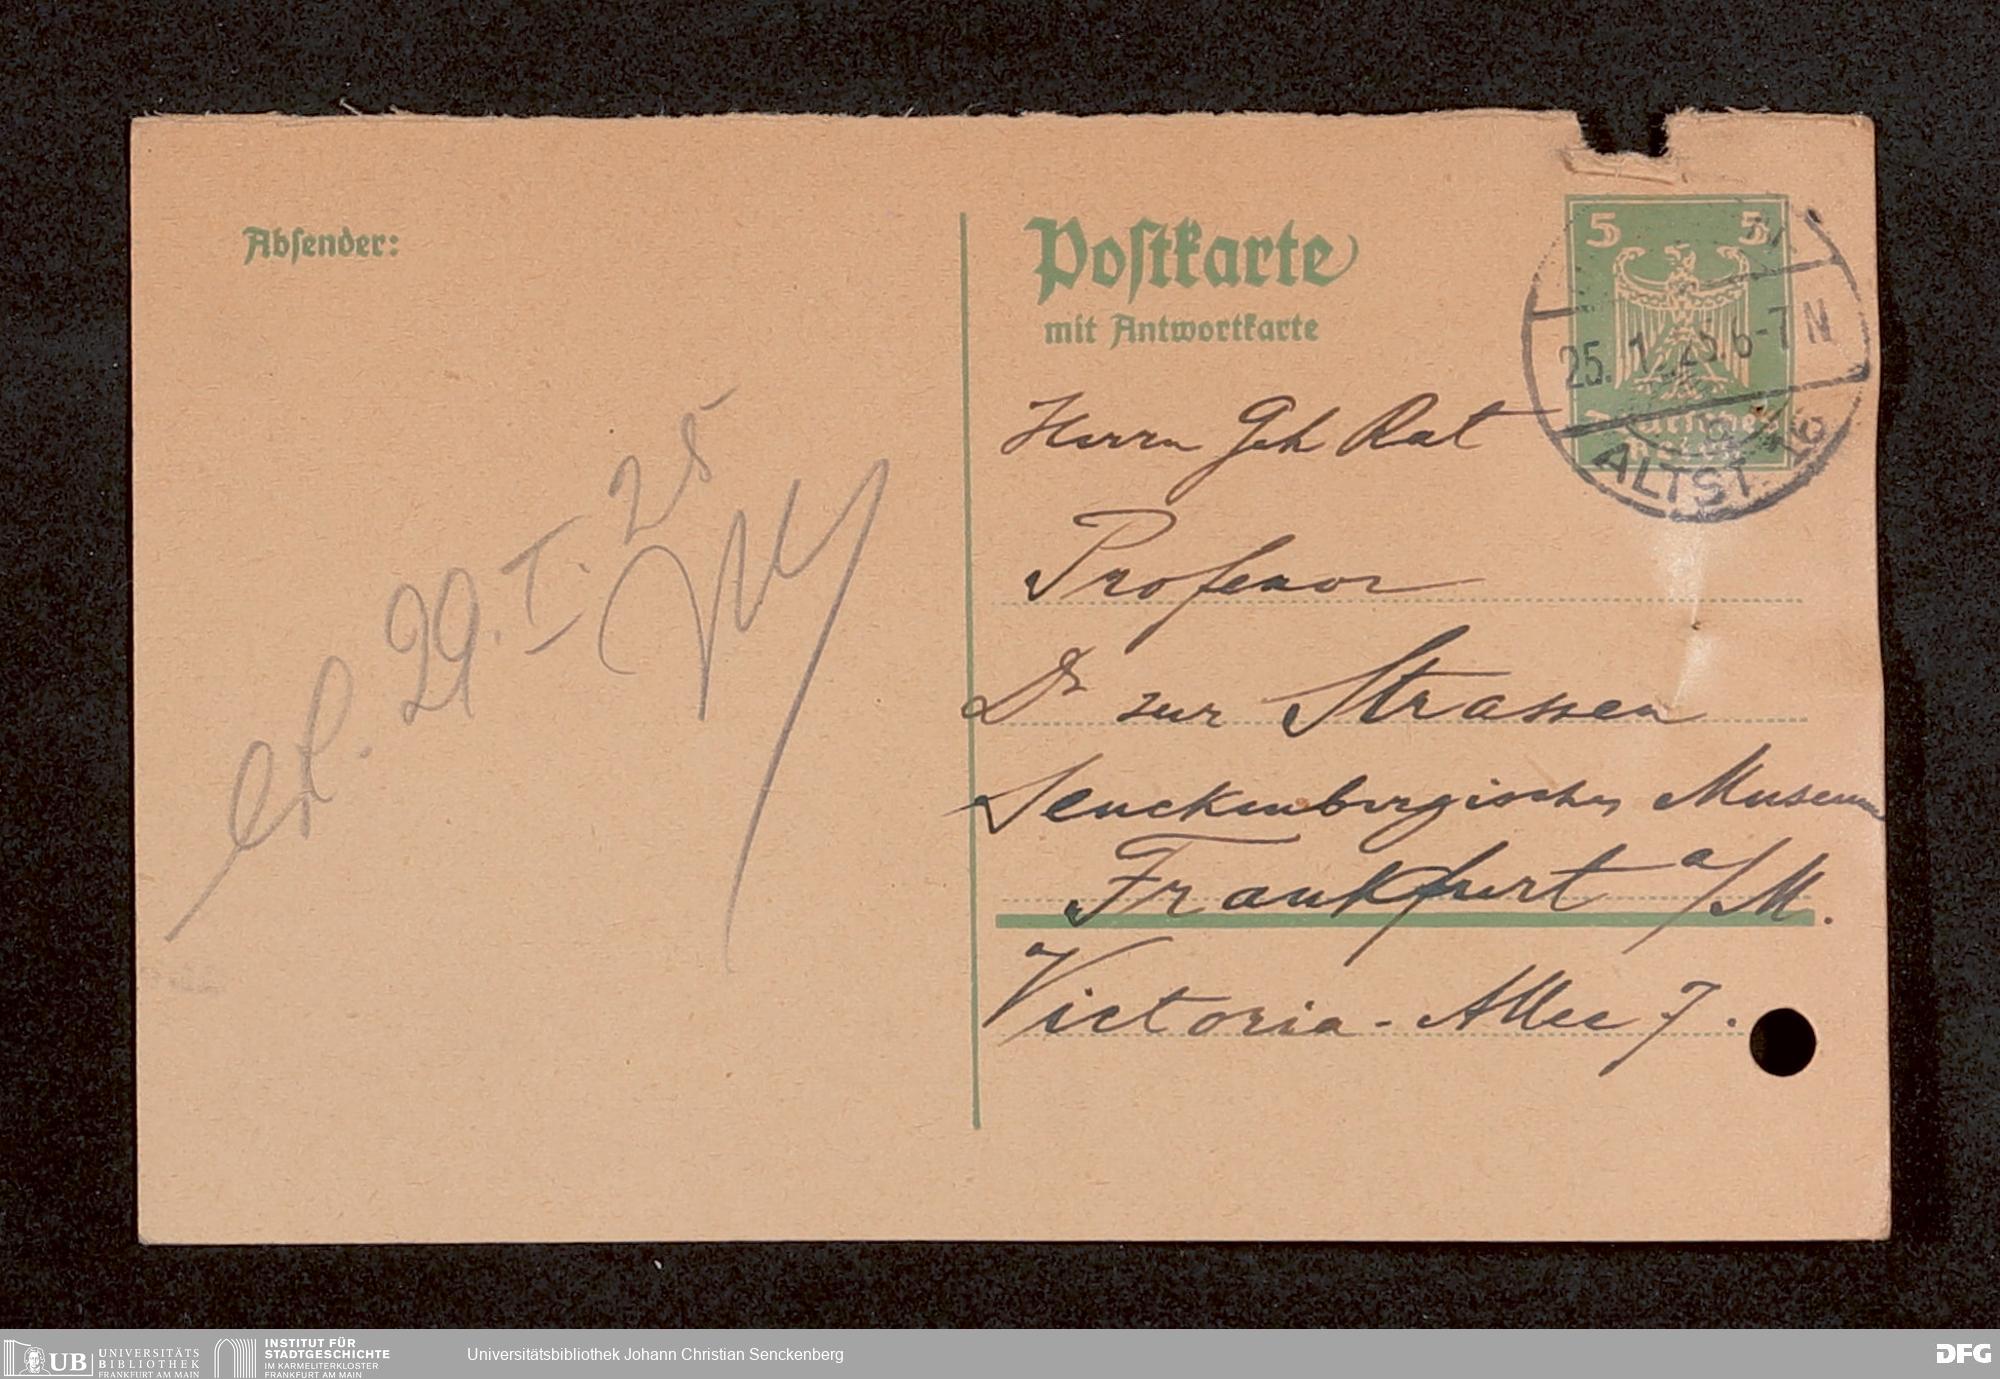 Absender:
erl. 29. I. 25
Postkarte
mit Antwortkarte
5 5
Deutsches
Reich
25. 1. 25. 6-7 N
ALTST.
Herrn Geh Rat
Professor
Dr zur Strassen
Senckenbergisches Museum
Frankfurt a/M.
Victoria-Allee 7.
UB UNIVERSITÄTS
BIBLIOTHEK
FRANKFURT AM MAIN
INSTITUT FÜR
STADTGESCHICHTE
IM KARMELITERKLOSTER
FRANKFURT AM MAIN
Universitätsbibliothek Johann Christian Senckenberg
DFG